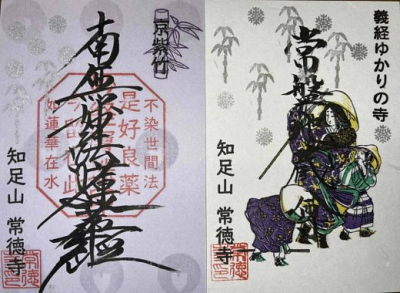 京紫竹
不染世間法
是好良薬
南無妙法蓮華経
如蓮華在水
知足山 常徳寺
義経ゆかりの寺
常盤
知足山 常徳寺